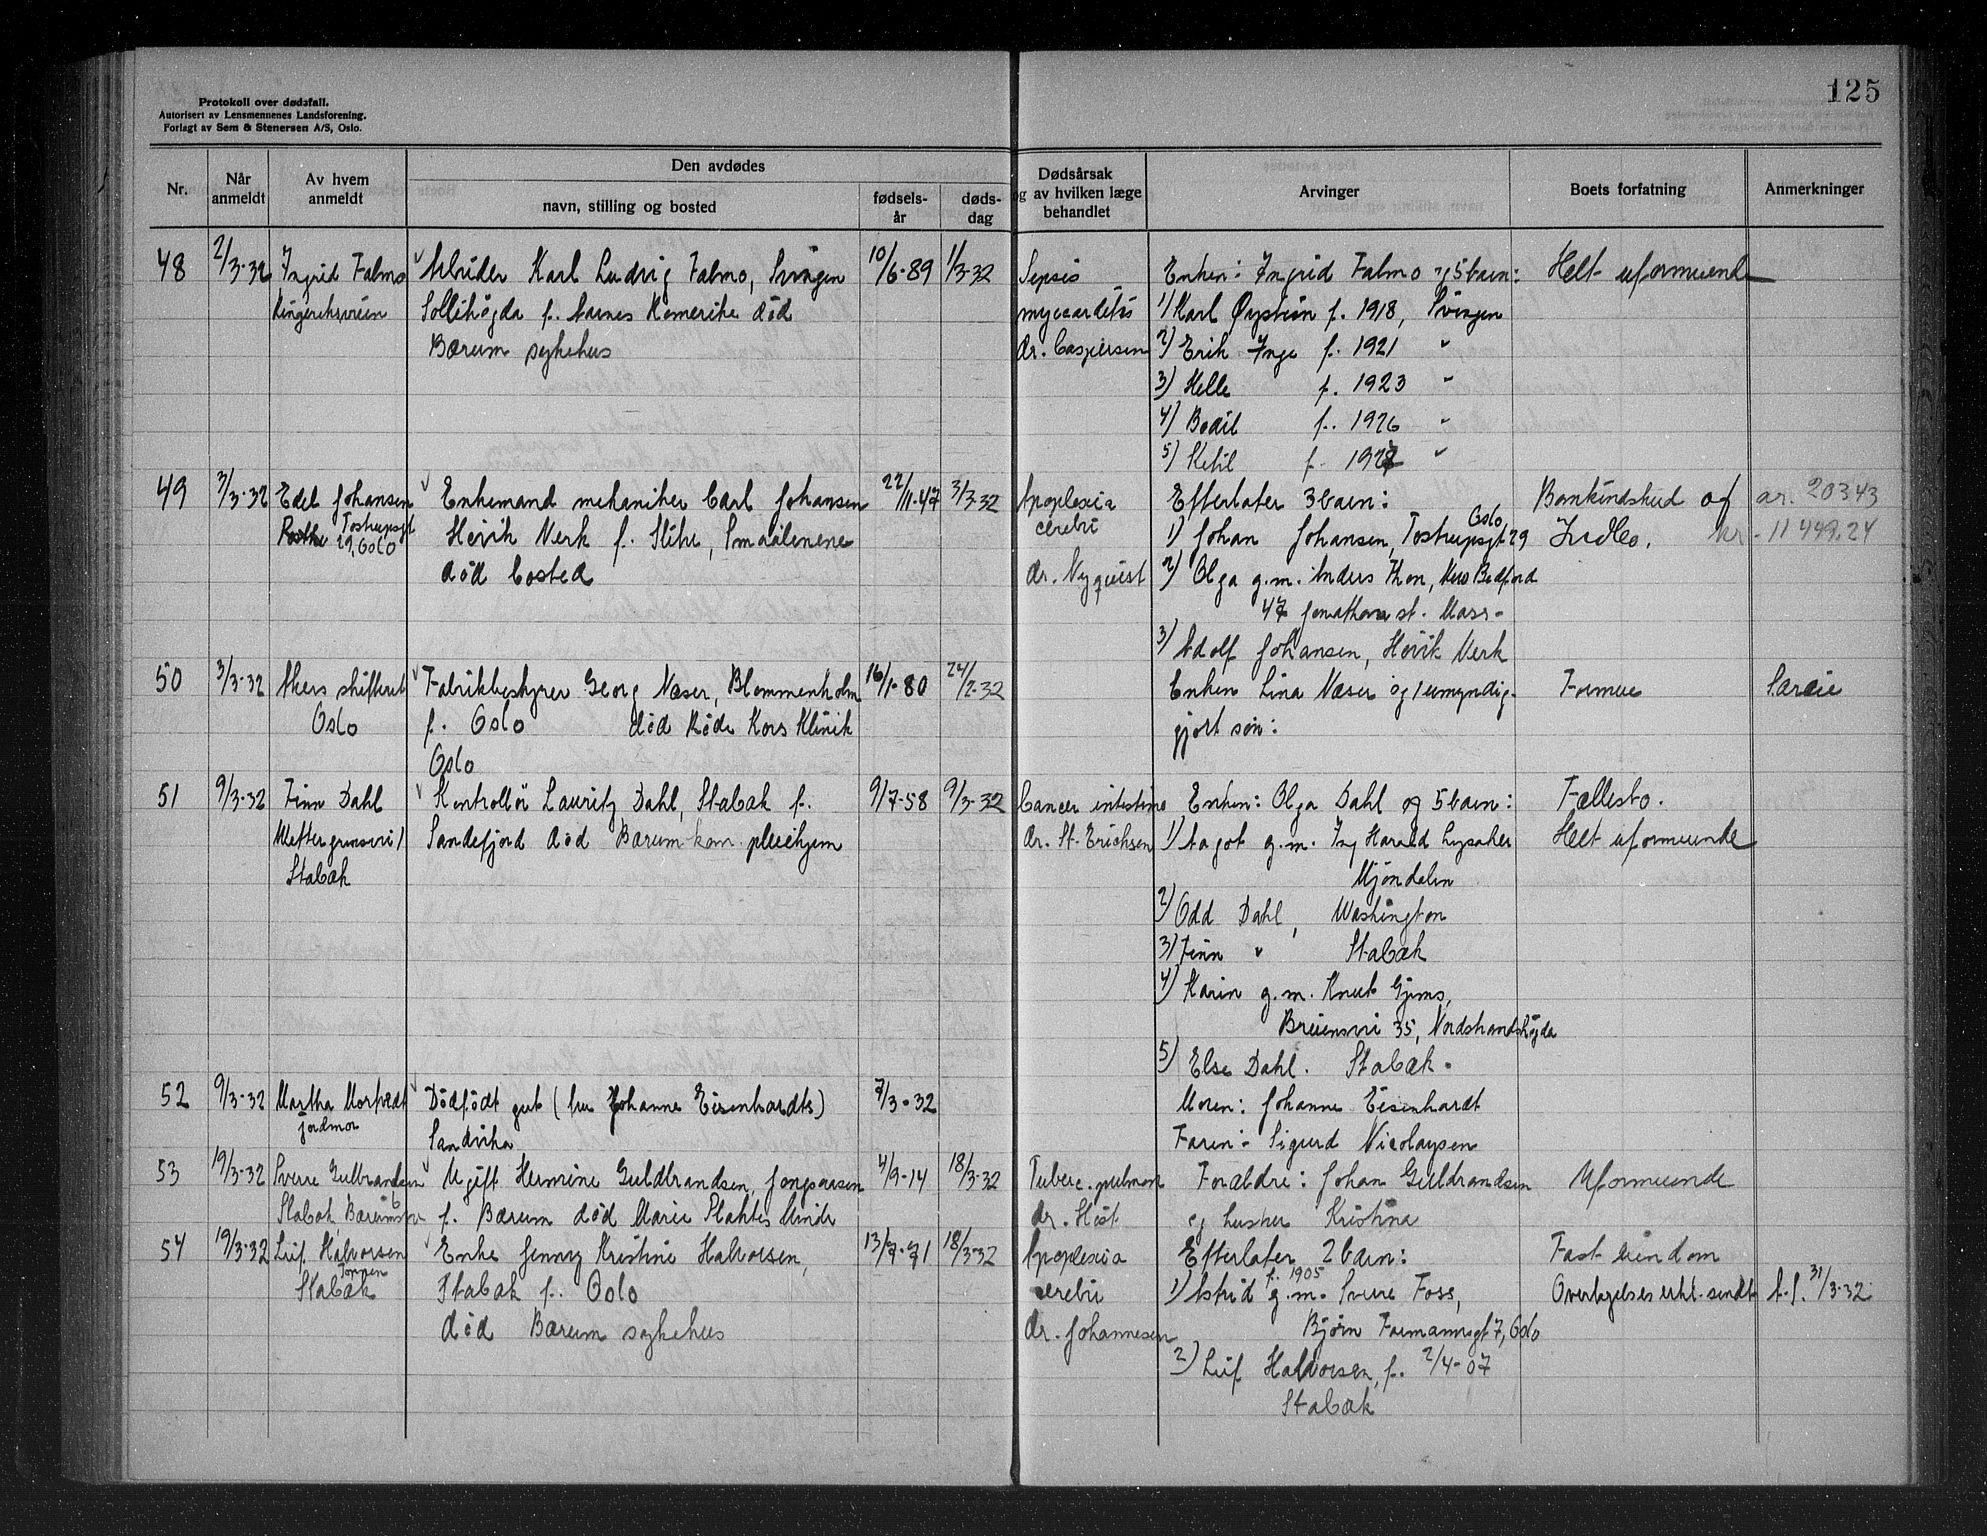 125
Protokoll over dødsfall.
Autorisert av Lensmennenes Landsforening.
Forlagt av Sem & Stenersen A/S, Oslo.
Nr.
Når anmeldt
Av hvem anmeldt
Den avdødes
navn, stilling og bosted
fødsels-år
døds-dag
Dødsårsak og av hvilken læge behandlet
Arvinger
Boets forfatning
Anmerkninger
48 2/3-32 Ingrid Falmo Arbeider Karl Ludvig Falmo, Svingen 10/6-89 1/3-32 Sepsis Enken: Ingrid Falmo og 5 barn: Helt uformuende
Ringeriksveien Sollihøgda f. Aarnes Romerike død myocarditis 1) Karl Øystein f. 1918, Svingen
Bærum sykehus dr. Caspersen 2) Erik Inge f. 1921 "
3) Helle f. 1923 "
4) Bodil f. 1926 "
5) Ketil f. 1927 "
49 3/3-32 Edel Johansen Enkemand mekaniker Carl Johansen 22/11-47 3/3-32 Apoplexia Efterlater 3 barn: Bankindskud og ar. 20343
Tostrupsgt 29, Oslo Høvik Verk f. Slitu, Smaalenene cerebri 1) Johan Johansen, Tostrupsgt 29 Oslo Indbo. kr. 11499.24
død bosted dr. Nyquist 2) Olga g.m. Anders Thon, New Bedford
47 Jonathan st. Mass.
3) Adolf Johansen, Høvik Verk
50 3/3-32 Akers skifteret Fabrikbestyrer Georg Næser, Blommenholm 16/1-80 24/2-32 Enken Lina Næser og 1 umyndig- Formue
Oslo f. Oslo død Røde Kors Klinik gjort søn:
Oslo
51 9/3-32 Finn Dahl Kontrollør Lauritz Dahl, Stabæk f. 9/7-58 9/3-32 Cancer intestino Enken: Olga Dahl og 5 barn: Fællesbo.
Wettergrensvei 1 Sandefjord død Bærum kom. pleiehjem dr. St. Erichsen 1) Aagot g.m. Ing Harald Lysaker Helt uformuende
Stabæk Mjøndalen
2) Odd Dahl, Washington
3) Finn " Stabæk
4) Karin g.m. Knut Gjems,
Breiensvei 35, Nordstrandshøgda
5) Else Dahl. Stabæk.
52 9/3-32 Martha Morstædt Dødfødt gut (fru Johanne Eisenhardts) 7/3-32 Moren: Johanne Eisenhardt
jordmor Sandvika Faren: Sigurd Nicolaysen
53 19/3-32 Sverre Gulbrandsen Ugift Hermine Guldbrandsen, Jongsaasen 4/9-14 18/3-32 Tuberc. pulmon Forældre: Johan Guldbrandsen Uformuende
Stabæk f. Bærum død Marie Plahtes Minde dr. Høst og hustru Kristina
54 19/3-32 Leif Halvorsen Enke Jenny Kristine Halvorsen, 13/7-71 18/3-32 Apoplexia Efterlater 2 barn: Fast eiendom
Stabæk Stabæk f. Oslo cerebri 1) Astrid f. 1905 g.m. Sverre Foss, Overtagelseserkl. sendt 31/3-32
død Bærum sykehus dr. Johannesen Bjørn Farmannsgt 7, Oslo
2) Leif Halvorsen, f. 2/4-07
Stabæk